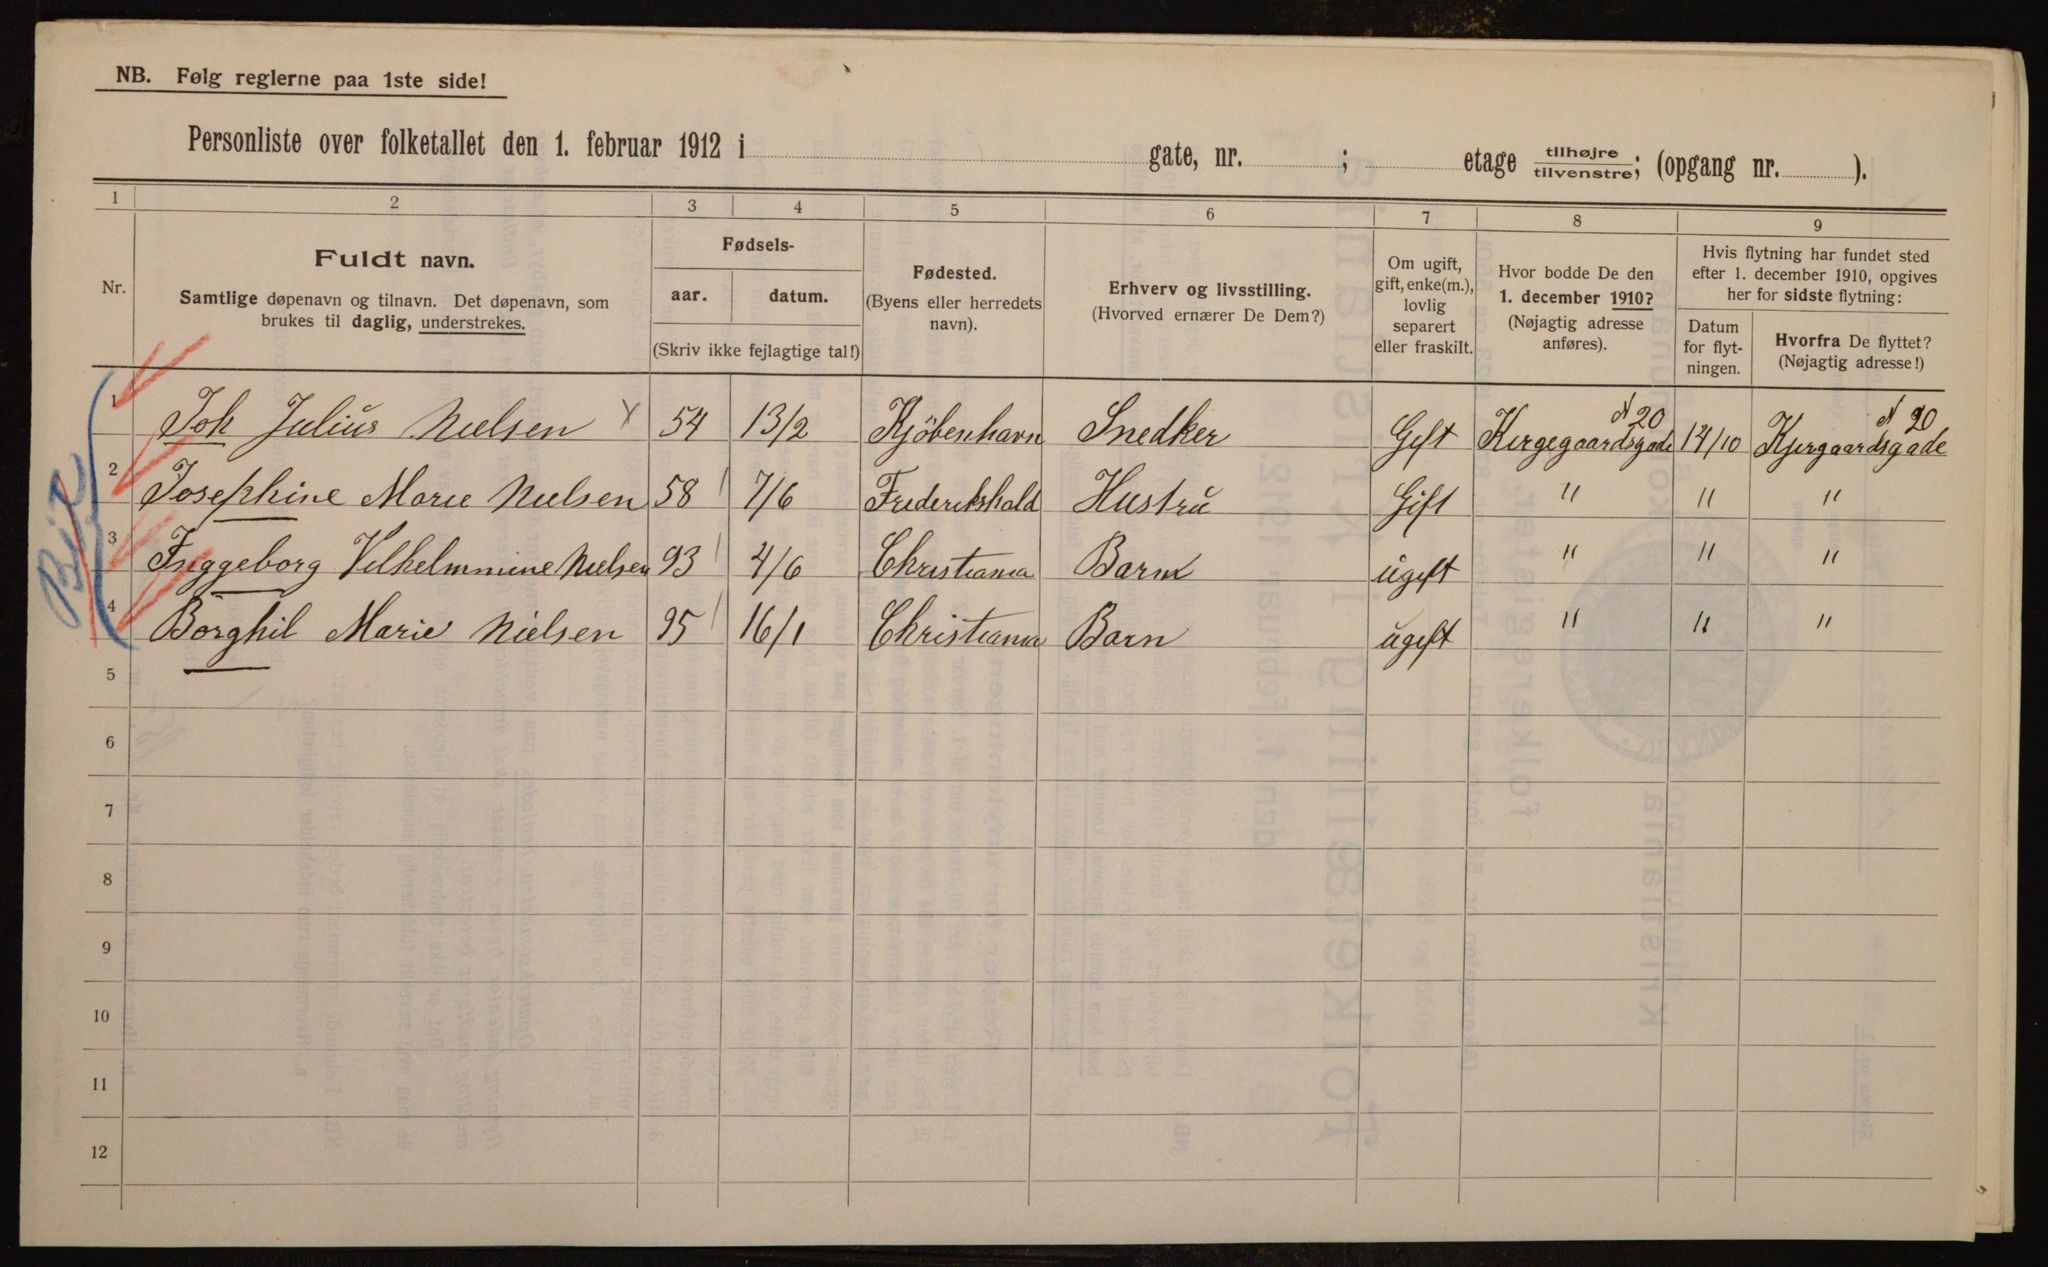 NB. Følg reglerne paa 1ste side!
Personliste over folketallet den 1. februar 1912 i gate, nr. ; etage tilhøjre tilvenstre; (opgang nr. ).
1 2 3 4 5 6 7 8 9
Nr.
Fuldt navn.
Samtlige døpenavn og tilnavn. Det døpenavn, som
brukes til daglig, understrekes.
Fødsels-
aar. datum.
(Skriv ikke fejlagtige tal!)
Fødested.
(Byens eller herredets
navn).
Erhverv og livsstilling.
(Hvorved ernærer De Dem?)
Om ugift,
gift, enke(m.),
lovlig
separert
eller fraskilt.
Hvor bodde De den
1. december 1910?
(Nøjagtig adresse
anføres).
Hvis flytning har fundet sted
efter 1. december 1910, opgives
her for sidste flytning:
Datum
for flyt-
ningen.
Hvorfra De flyttet?
(Nøjagtig adresse!)
1 Joh Julius Nielsen 54 13/2 Kjöbenhavn Snedker Gift Kirgegaardsgade N 20 14/10 Kjergaardsgade N 20
2 Josephine Marie Nielsen 58 7/6 Frederikshald Hustru Gift " " "
3 Inggeborg Vilhelmmine Nielsen 93 4/6 Christiania Barn ugift " " "
4 Borghil Marie Nielsen 95 16/1 Christiania Barn ugift " " "
5
6
7
8
9
10
11
12